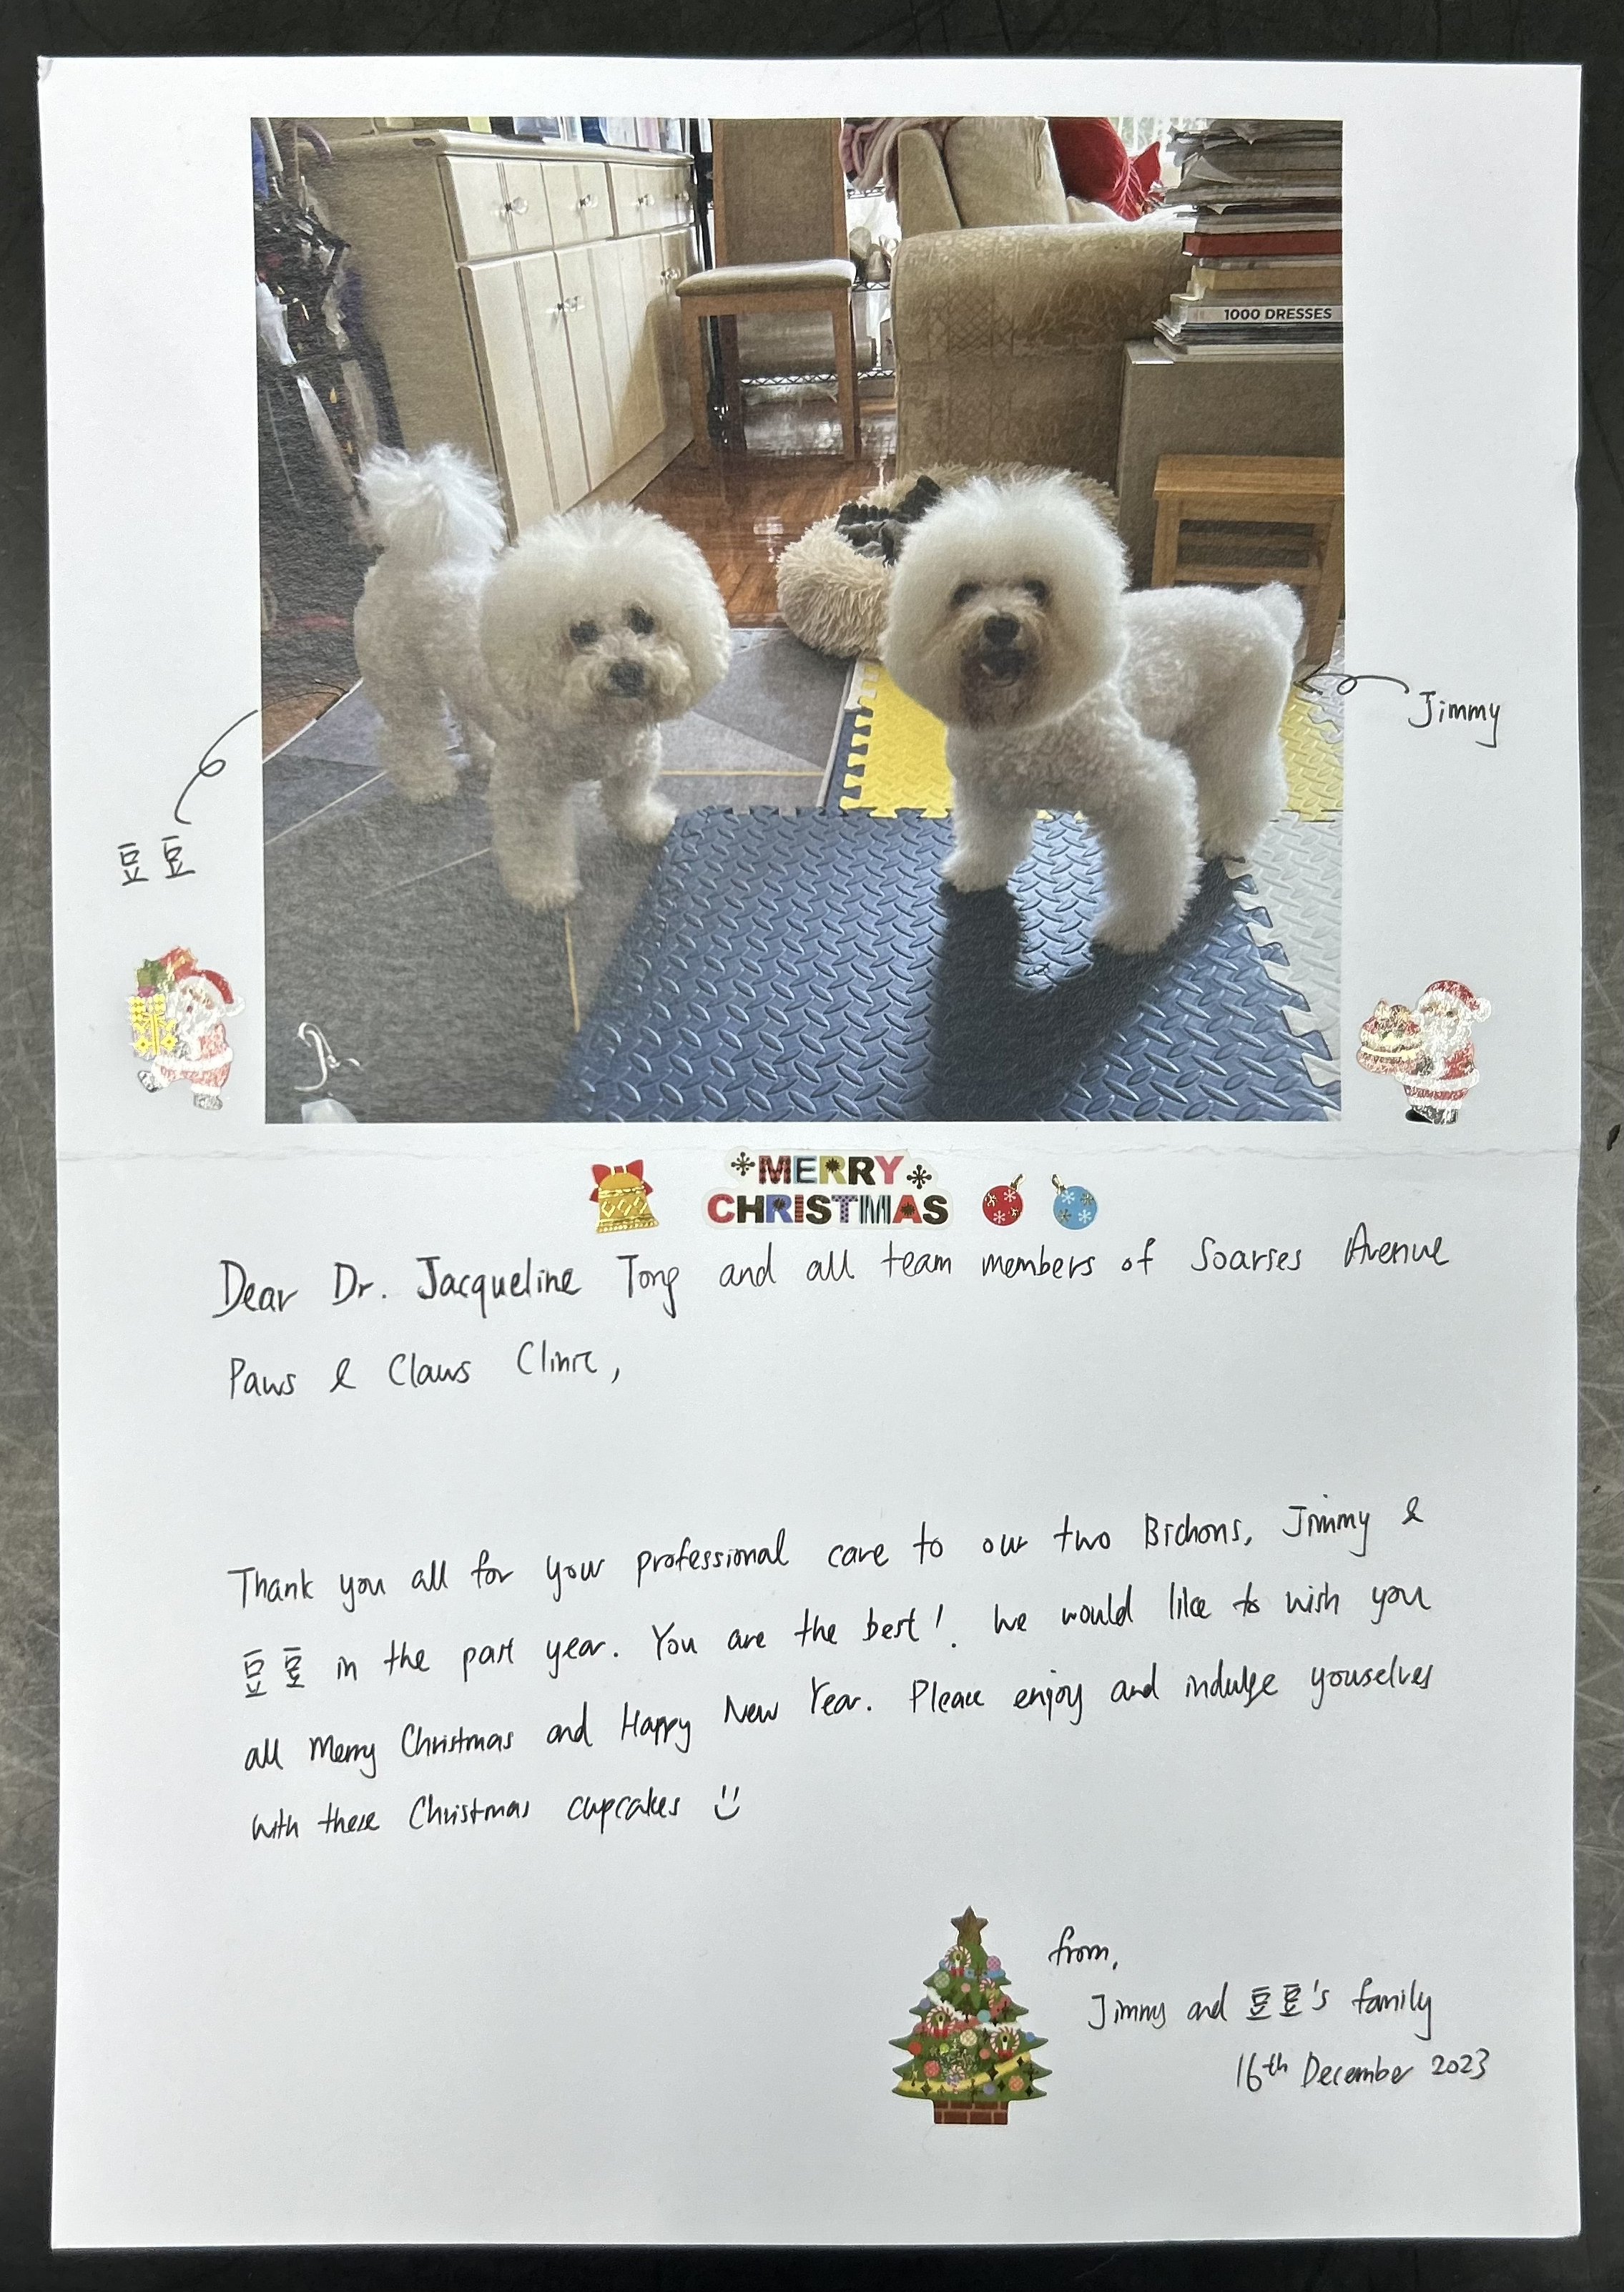 1000 DRESSES
Jimmy
豆豆
MERRY
CHRISTMAS
Dear Dr. Jacqueline Tong and all team members of Soarses Avenue
Paws & Claws Clinic,
Thank you all for your professional care to our two Bichons, Jimmy &
豆豆 in the past year. You are the best! We would like to wish you
all Merry Christmas and Happy New Year. Please enjoy and indulge youselves
with these Christmas cupcakes
from,
Jimmy and 豆豆's family
16th December 2023